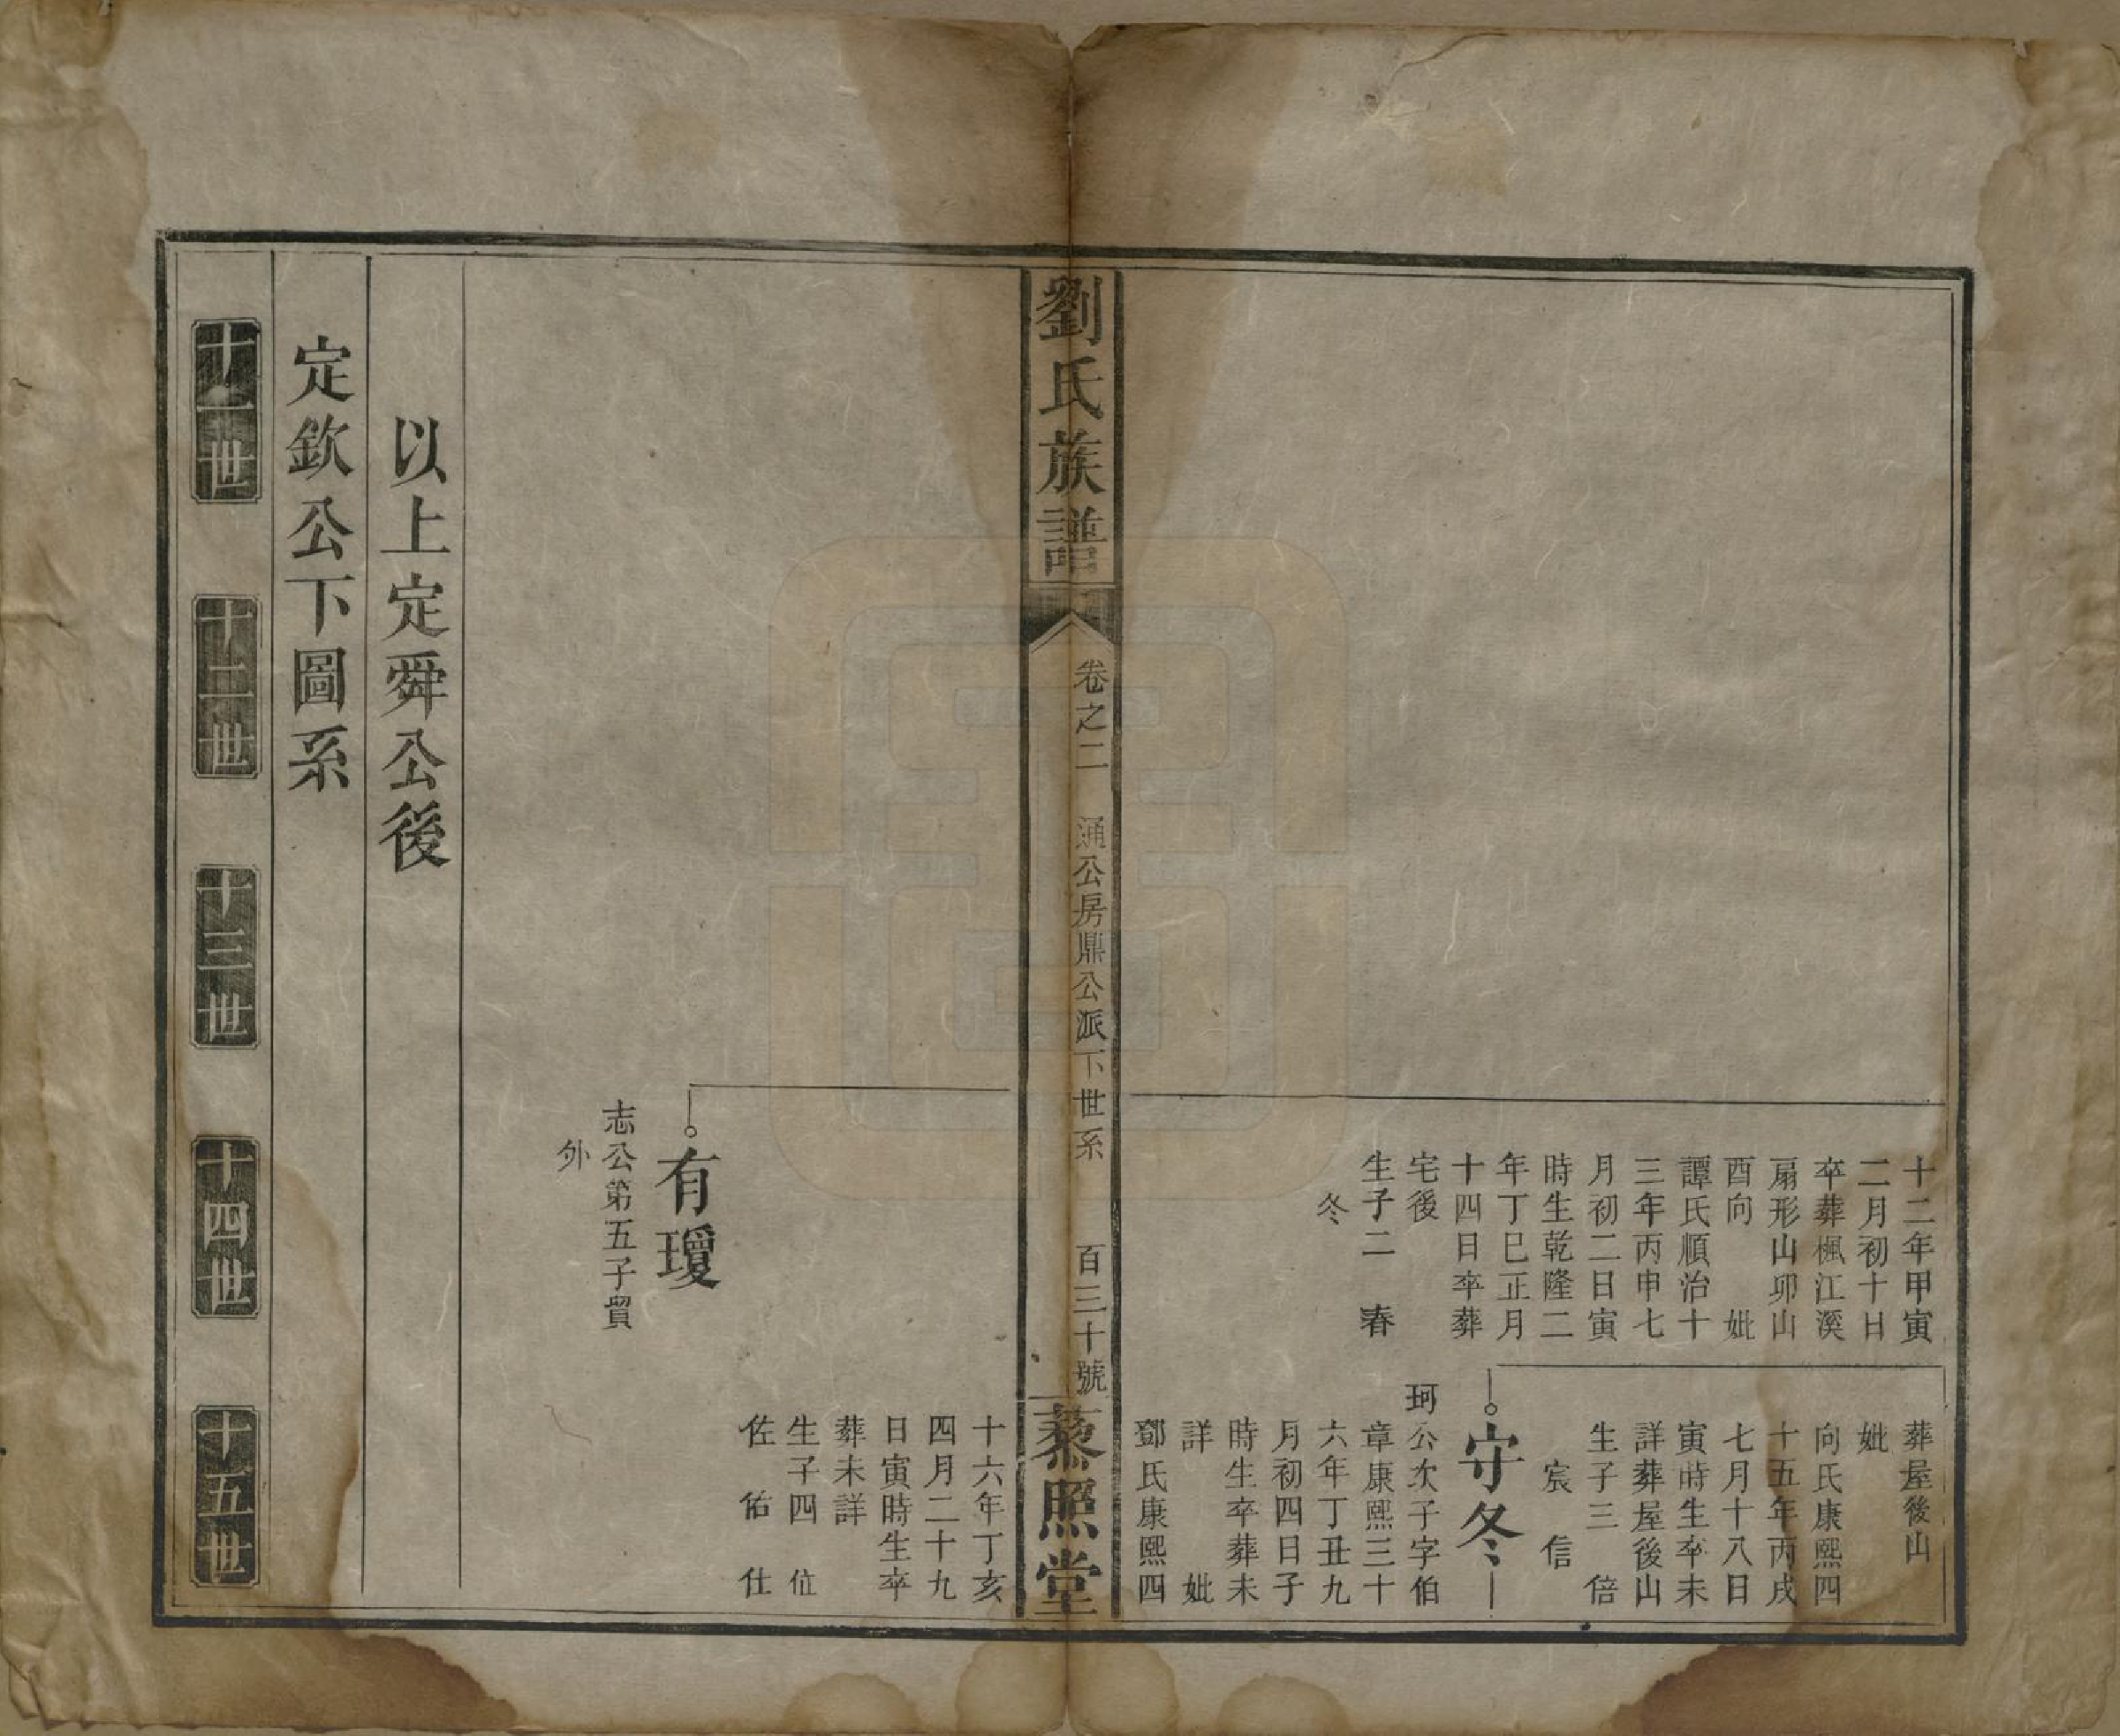 十二年甲寅
二月初十日
卒葬楓江溪
扇形山卯山
酉向　妣
譚氏順治十
三年丙申七
月初二日寅
時生乾隆二
年丁巳正月
十四日卒葬
宅後
生子二　春
冬
葬屋後山
妣
向氏康熙四
十五年丙戌
七月十八日
寅時生卒未
詳葬屋後山
生子三　倍
宸　信
守冬
珂公次子字伯
章康熙三十
六年丁丑九
月初四日子
時生卒葬未
詳　妣
鄧氏康熙四
劉氏族譜
卷之二　通公房鼎公派下世系　百三十號
藜照堂
十六年丁亥
四月二十九
日寅時生卒
葬未詳
生子四　位
佐　佑　仕
有瓊
志公第五子貿
外
以上定舜公後
定欽公下圖系
十一世　十二世　十三世　十四世　十五世